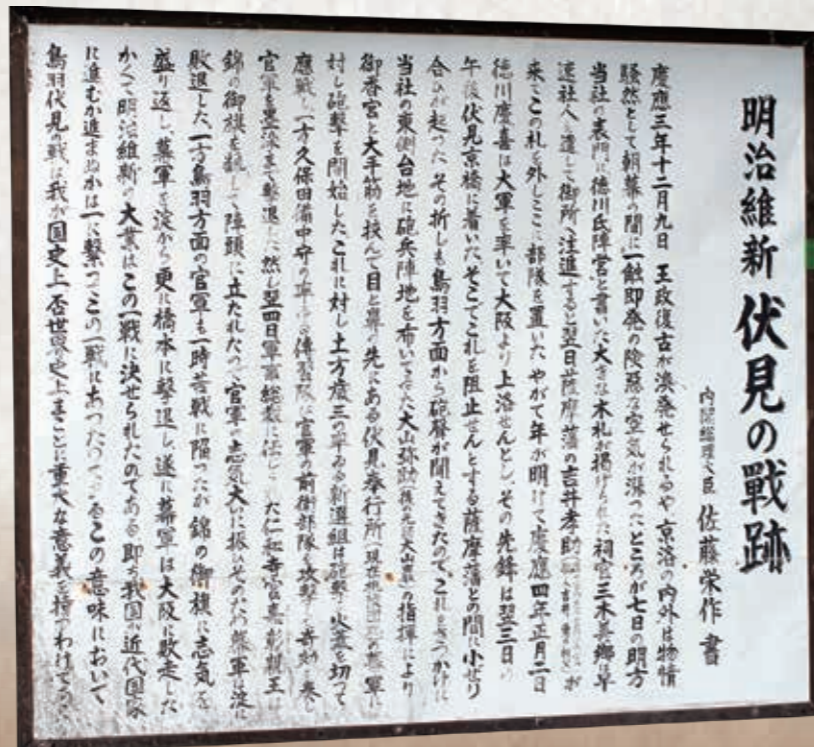 明治維新 伏見の戰跡
内閣総理大臣 佐藤栄作 書
慶應三年十二月九日 王政復古が渙発せられるや、京洛の内外は物情
騒然として朝幕の間に一触即発の険悪な空気が漲った ところが七日の明方
当社の表門に徳川氏陣営と書いた大きな木札が掲げられた 祠官三木善郷は早
速社人を遣して御所へ注進すると翌日薩摩藩の吉井孝助が
来てこの札を外しここに部隊を置いた やがて年が明けて慶應四年正月二日
徳川慶喜は大軍を率いて大阪より上洛せんとし、その先鋒は翌三日の
午後伏見京橋に着いた そこでこれを阻止せんとする薩摩藩との間に小ぜり
合ひが起った その折しも鳥羽方面から砲聲が聞えてきたので、これをきつかけに
当社の東側台地に砲兵陣地を布いてゐた大山弥助(後の元帥大山巌)の指揮により
御香宮と大手筋を挟んで目と鼻の先にある伏見奉行所の幕軍に
対し砲撃を開始した これに対し土方歳三の率ゐる新選組は砲撃の火蓋を切って
應戦し一方久保田備中守の率ゐる傳習隊は官軍の前衛部隊を攻撃し奇効を奏し
官軍を墨染まで撃退した 然し翌四日軍事総裁に任じられた仁和寺宮嘉彰親王は
錦の御旗を飜して陣頭に立たれたので官軍の志気大いに振ひそのため幕軍は淀に
敗退した、一方鳥羽方面の官軍も一時苦戦に陥ったが錦の御旗に志気を
盛り返し、幕軍を淀から更に橋本に撃退し、遂に幕軍は大阪に敗走した
かくて明治維新の大業はこの一戦に決せられたのである 即ち我国が近代国家
に進むか進まぬかは一に繋ってこの一戦にあったのである この意味において
鳥羽伏見の戦は我が国史上否世界史上まことに重大な意義を持つわけである